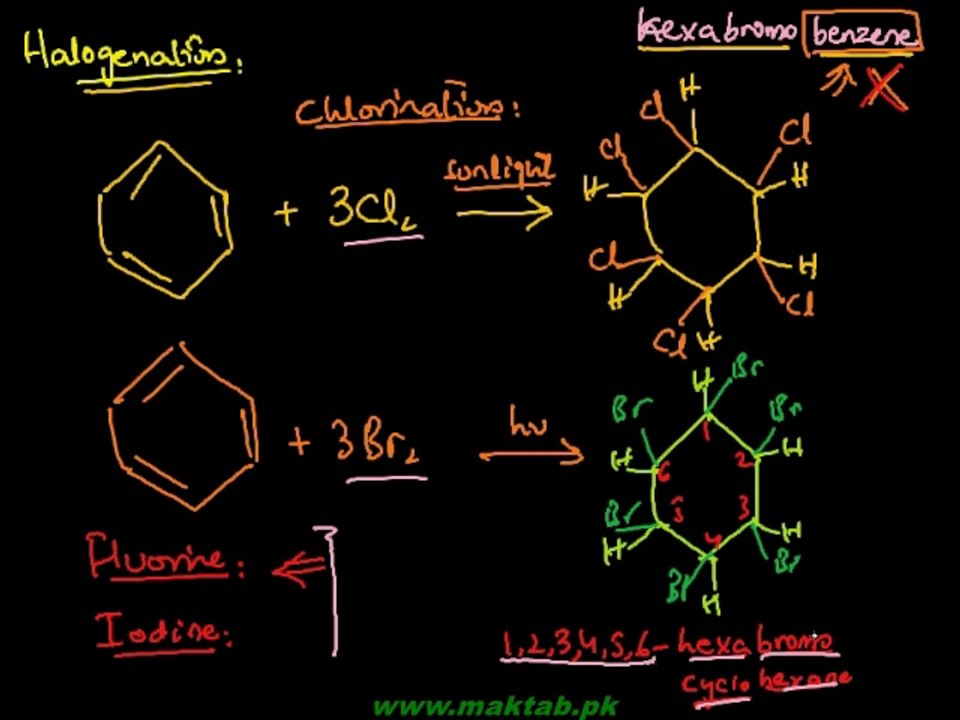 Halogenation:
hexabromo benzene
X
Chlorination:
+ 3Cl₂ sunlight
H
Cl
Cl
Cl
H
H
Cl
H
H
Cl
Cl
H
+ 3Br₂ hν
H
Br
Br
Br
H
H
Br
H
H
Br
Br
H
1
2
3
4
5
6
Fluorine:
Iodine:
1,2,3,4,5,6-hexabromo
cyclohexane
www.maktab.pk